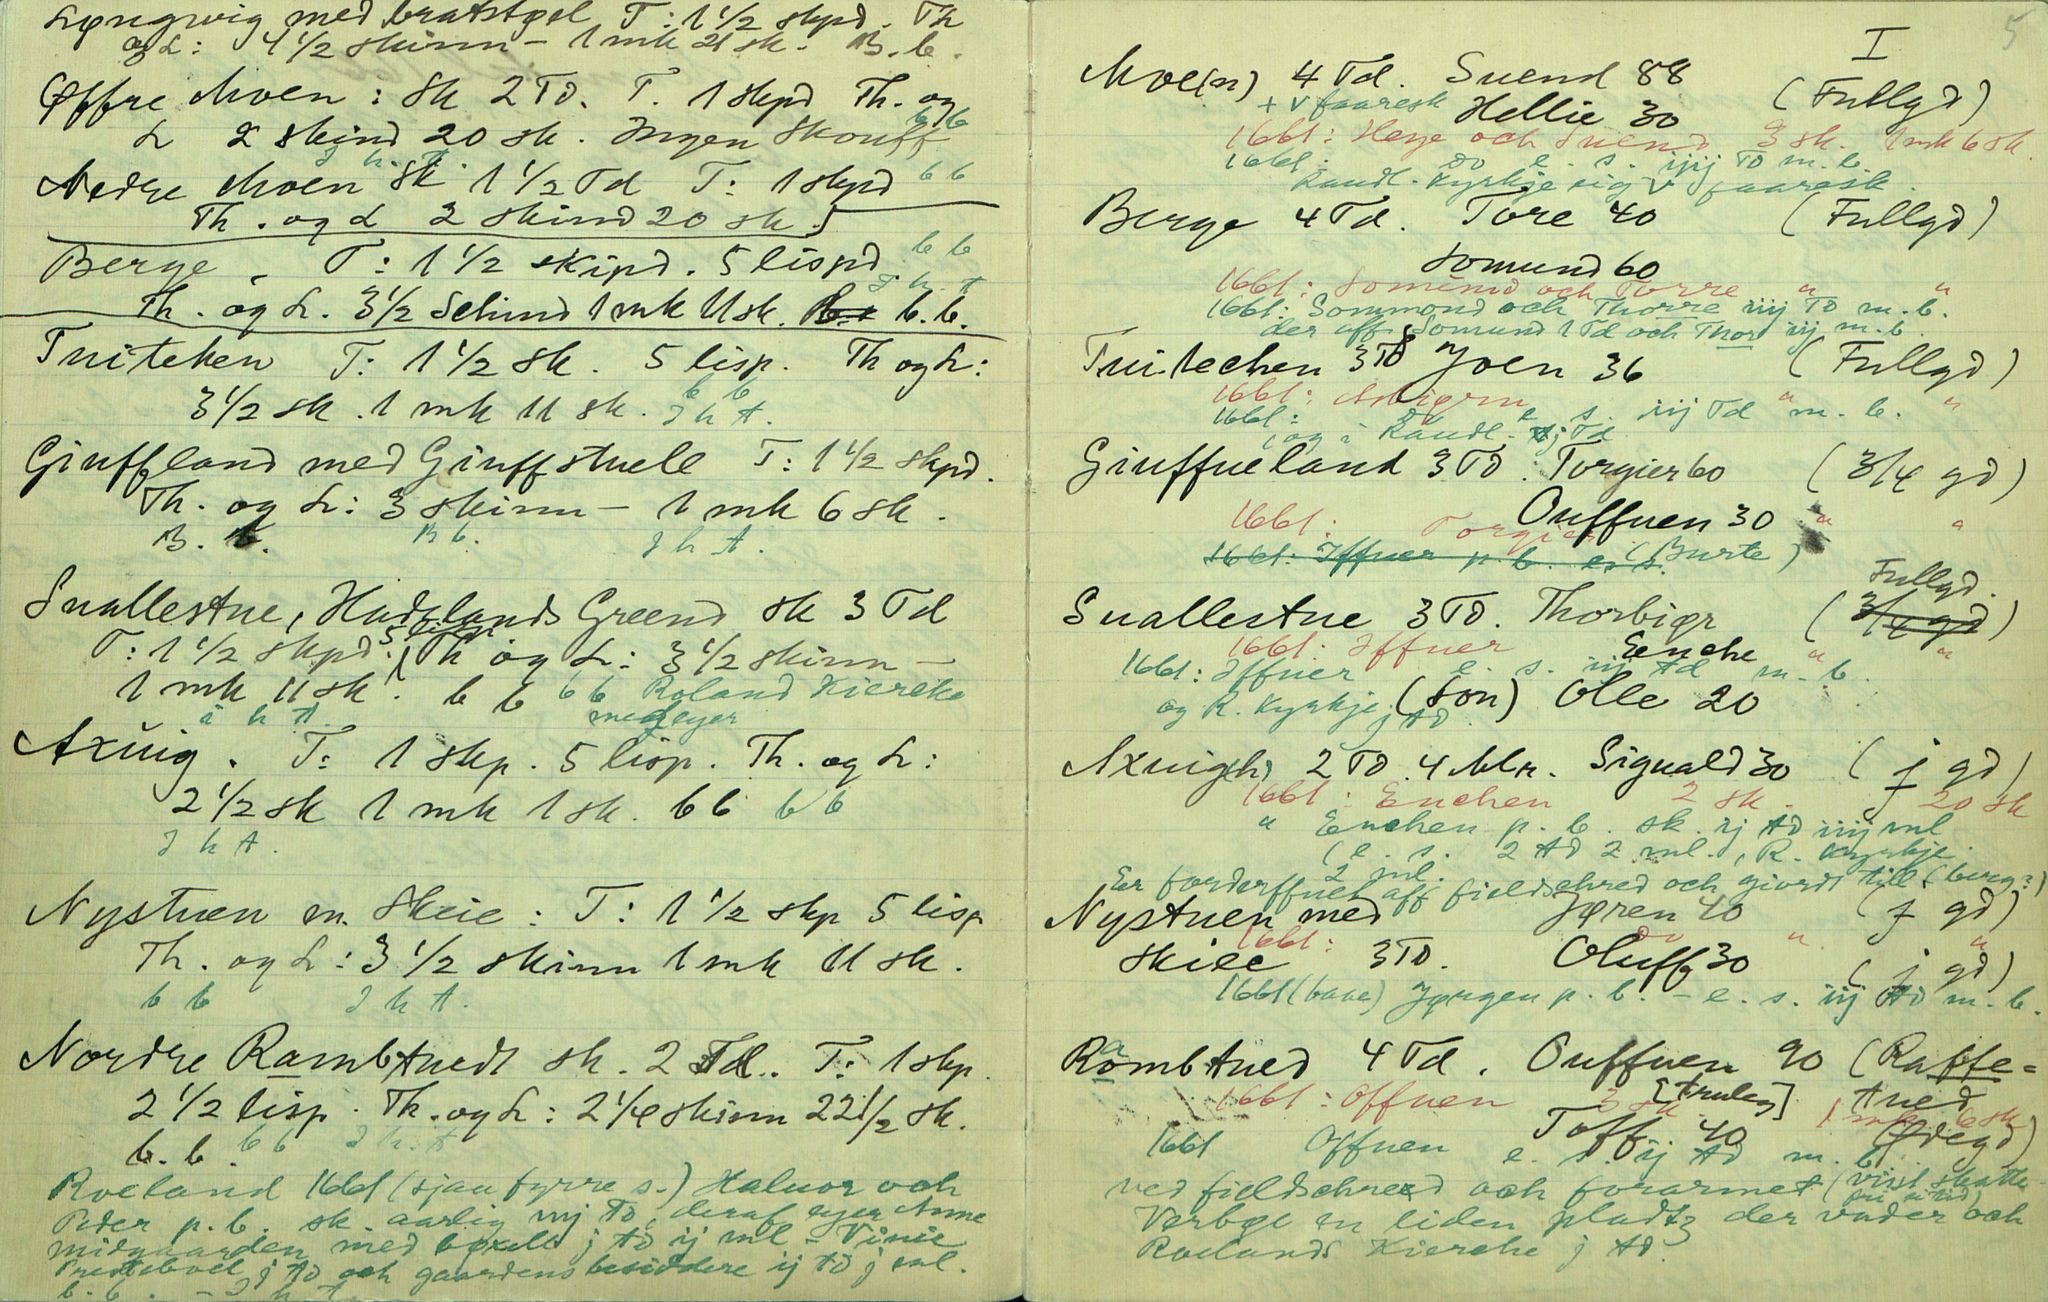 Lqngwig med bratstøel T: 1 1/2 skpd. Th
og L: 4 1/2 skinn - 1 mk 21 sk. B. b.
Øffre Moen: sk 2 Td. T. 1 skpd Th. og
L 2 skind 20 sk. Ingen Skouff b b
J h. A.
Nedre Moen Sk 1 1/2 Td T: 1 skpd b b
Th. og L 2 skind 20 sk.
Berge. T: 1 1/2 skipd. 5 lispd b b
J h. A
Th. og L. 3 1/2 Schind 1 mk 11 sk. b. b.
Tuiteken T: 1 1/2 sk. 5 lisp. Th og L:
3 1/2 sk. 1 mk 11 sk. b b J h A.
Giuffland med Giuffstuele T: 1 1/2 skpd.
Th. og L: 3 skinn - 1 mk 6 sk.
B. b. B b. J h A.
Suallestue, Hadelands Greend sk 3 Td
T: 1 1/2 skpd. 5 lisp. Th og L: 3 1/2 skinn -
1 mk 11 sk. b b b b Roland Kiercke
i h A. medeyer
Axuig. T: 1 skp. 5 lisp. Th. og L:
2 1/2 sk 1 mk 1 sk. b b b b
J h A.
Nystuen m. Skeie: T: 1 1/2 skp 5 lisp
Th. og L: 3 1/2 skinn 1 mk 11 sk.
b b J h A.
Nordre Rambtuedt sk. 2 Td. T: 1 skp.
2 1/2 lisp. Th. og L: 2 1/4 skinn 22 1/2 sk.
b. b. b b J h. A
Roeland 1661 (sjau fyrre s.) Haluor och
Peder p. b. sk. aarlig iiij Td, deraf eyer Anne
midgaarden med bøxell j td ij ml - Vinie
Presteboel j td och gaardens besiddere ij td j ml.
b. b. - J h A
5
I
Moe(n) 4 Td. Suend 88 (Fullgd)
+ V faaresk Hellie 30
1661: Hege och Suend 3 sk. 1 mk 6 sk.
1661: do e. s. iiij Td m. b.
Raudl. Kyrkje sig V faaresk.
Berge 4 Td. Tore 40 (Fullgd)
Somund 60
1661: Somund och Torre " "
1661: Sommond och Thorre iiij Td m. b.
der aff Somund 1 Td och Thor iij m. b.
Tuitechen 3 Td Joen 36 (Fullgd)
1661: " "
1661: do e. s. iij Td m. b.
(og i Raudl. j Td
Giuffueland 3 Td. Torgier 60 (3/4 gd)
Ouffuen 30
1661: Torgier " "
1661: Iffuer p. b. e. s. (Burte)
Suallestue 3 Td. Thorbiør (3/4 gd) Fullgd.
1661: Iffuer Enche " "
1661: Iffuer e. s. iij td m. b.
(Søn) Olle 20
og R. Kyrkje j td
Axuig(h) 2 Td 4 Mlr. Siguald 30 (j gd)
1661: Enchen 2 sk. 20 sk
" Enchen p. b. sk. ij td iiij ml
(e. s. 2 td 2 ml., R. Kyrkje
2 ml.
Er forderffuet aff fieldschred och giordt till (berg?)
Nystuen med Jøren 40 (j gd)
1661: do " "
Skiee 3 Td. Oluff 30 (j gd)
1661 (bane) Jørgen p. b. - e. s. iij td m. b.
Rambtued 4 Td. Ouffuen 90 (Raffe=
tued
1661: Offuen 3 sk. [truleg] 1 mk 6 sk
Toff 40 (Ødegd)
1661 Offuen e. s. ij td m. b.
ved fieldschred och forarmet (visst skatte-
fri ei tid)
Verbøe en liden pladtz der under och
Roelands Kierche j td.